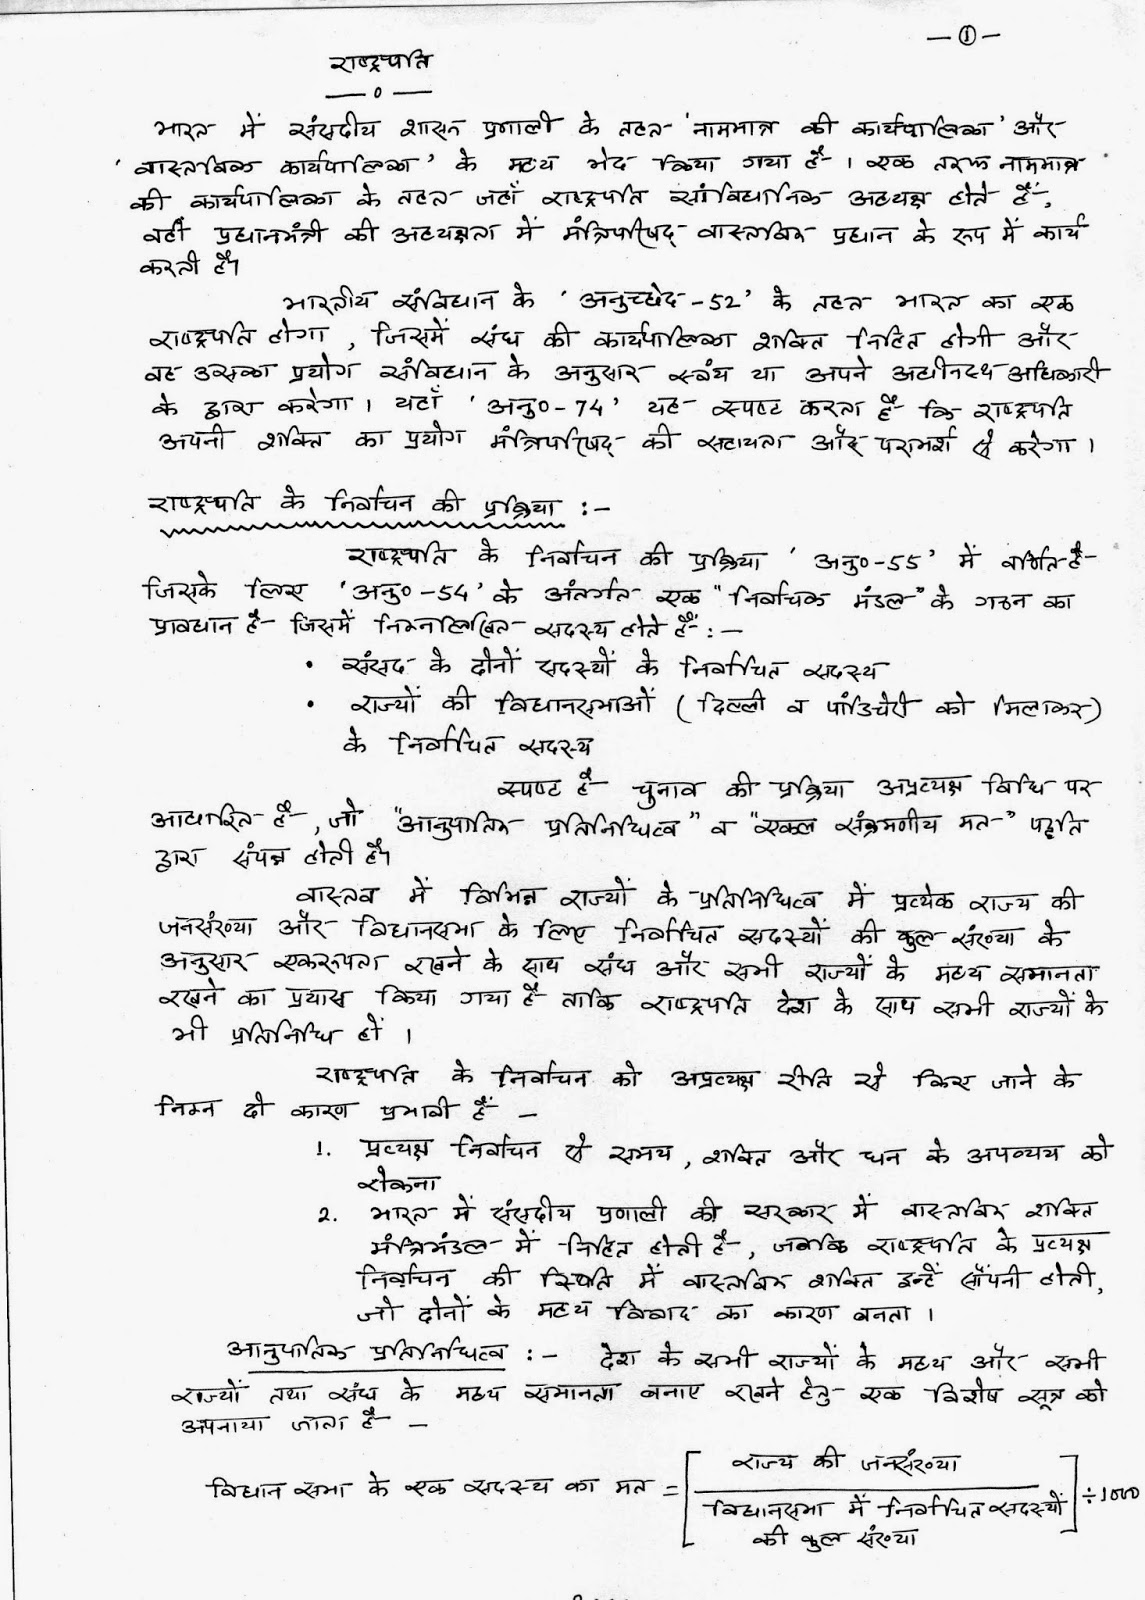 — ① —
राष्ट्रपति
— ० —
भारत में संसदीय शासन प्रणाली के तहत 'नाममात्र की कार्यपालिका' और
'वास्तविक कार्यपालिका' के मध्य भेद किया गया है। एक तरफ नाममात्र
की कार्यपालिका के तहत जहाँ राष्ट्रपति सांविधानिक अध्यक्ष होते हैं,
वहीं प्रधानमंत्री की अध्यक्षता में मंत्रिपरिषद् वास्तविक प्रधान के रूप में कार्य
करती है।
भारतीय संविधान के 'अनुच्छेद-52' के तहत भारत का एक
राष्ट्रपति होगा, जिसमें संघ की कार्यपालिका शक्ति निहित होगी और
वह उसका प्रयोग संविधान के अनुसार स्वंय या अपने अधीनस्थ अधिकारी
के द्वारा करेगा। यहाँ 'अनु०-74' यह स्पष्ट करता है कि राष्ट्रपति
अपनी शक्ति का प्रयोग मंत्रिपरिषद् की सहायता और परामर्श से करेगा।
राष्ट्रपति के निर्वाचन की प्रक्रिया :-
राष्ट्रपति के निर्वाचन की प्रक्रिया 'अनु०-55' में वर्णित है
जिसके लिए 'अनु०-54' के अंतर्गत एक "निर्वाचक मंडल" के गठन का
प्रावधान है जिसमें निम्नलिखित सदस्य होते हैं :-
• संसद के दोनों सदस्यों के निर्वाचित सदस्य
• राज्यों की विधानसभाओं (दिल्ली व पांडिचेरी को मिलाकर)
के निर्वाचित सदस्य
स्पष्ट है चुनाव की प्रक्रिया अप्रत्यक्ष विधि पर
आधारित है, जो "आनुपातिक प्रतिनिधित्व" व "एकल संक्रमणीय मत" पद्दति
द्वारा संपन्न होती है।
वास्तव में विभिन्न राज्यों के प्रतिनिधित्व में प्रत्येक राज्य की
जनसंख्या और विधानसभा के लिए निर्वाचित सदस्यों की कुल संख्या के
अनुसार एकरूपता रखने के साथ संघ और सभी राज्यों के मध्य समानता
रखने का प्रयास किया गया है ताकि राष्ट्रपति देश के साथ सभी राज्यों के
भी प्रतिनिधि हों।
राष्ट्रपति के निर्वाचन को अप्रत्यक्ष रीति से किए जाने के
निम्न दो कारण प्रभावी हैं —
1. प्रत्यक्ष निर्वाचन से समय, शक्ति और धन के अपव्यय को
रोकना
2. भारत में संसदीय प्रणाली की सरकार में वास्तविक शक्ति
मंत्रिमंडल में निहित होती है, जबकि राष्ट्रपति के प्रत्यक्ष
निर्वाचन की स्थिति में वास्तविक शक्ति इन्हें सौंपनी होती,
जो दोनों के मध्य विवाद का कारण बनता।
आनुपातिक प्रतिनिधित्व :- देश के सभी राज्यों के मध्य और सभी
राज्यों तथा संघ के मध्य समानता बनाए रखने हेतु एक विशेष सूत्र को
अपनाया जाता है —
विधान सभा के एक सदस्य का मत = [राज्य की जनसंख्या
विधानसभा में निर्वाचित सदस्यों
की कुल संख्या] ÷ 1000